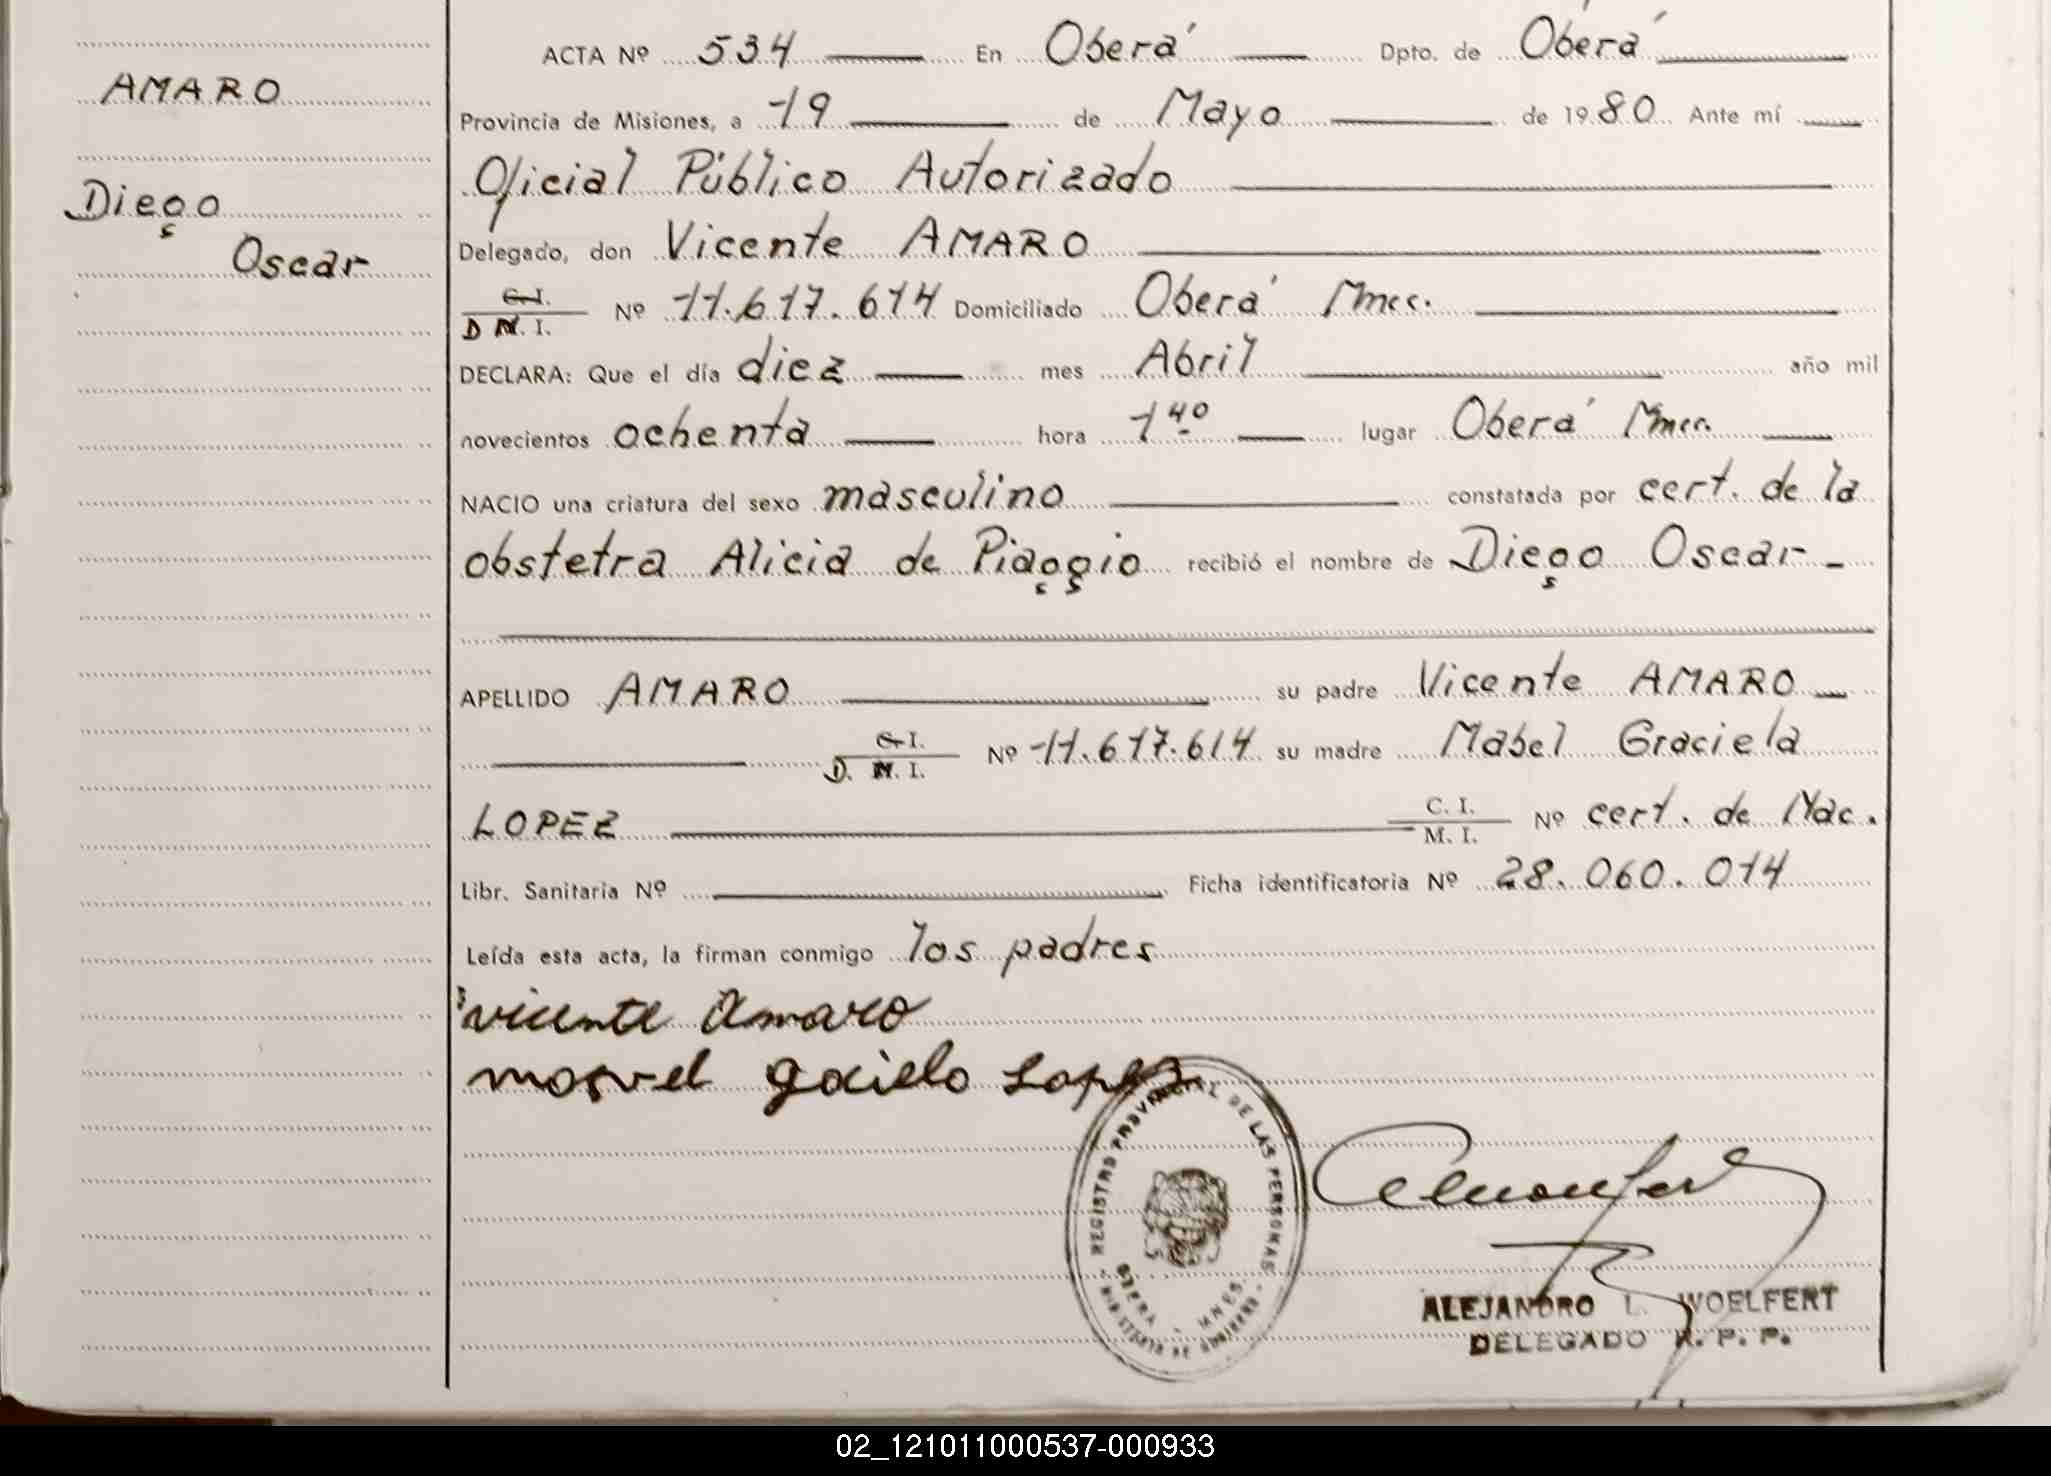 ACTA Nº 534 En Oberá Dpto. de Oberá
AMARO
Provincia de Misiones, a 19 de Mayo de 1980 Ante mí
Oficial Público Autorizado
Diego
Delegado, don Vicente AMARO
Oscar
C. I.
D N. I. Nº 11.617.614 Domiciliado Oberá Mnes.
DECLARA: Que el día diez mes Abril año mil
novecientos ochenta hora 1 40 lugar Oberá Mnes.
NACIO una criatura del sexo masculino constatada por cert. de la
obstetra Alicia de Piaggio recibió el nombre de Diego Oscar
APELLIDO AMARO su padre Vicente AMARO
C. I.
D. N. I. Nº 11.617.614 su madre Mabel Graciela
LOPEZ C. I.
M. I. Nº cert. de Nac.
Libr. Sanitaria Nº Ficha identificatoria Nº 28.060.014
Leída esta acta, la firman conmigo los padres
vicente Amaro
gocielo Lopez
REGISTRO PROVINCIAL DE LAS PERSONAS
OBERA - MNES.
MINISTERIO DE GOBIERNO
ALEJANDRO L. WOELFERT
DELEGADO R. P. P.
02_121011000537-000933